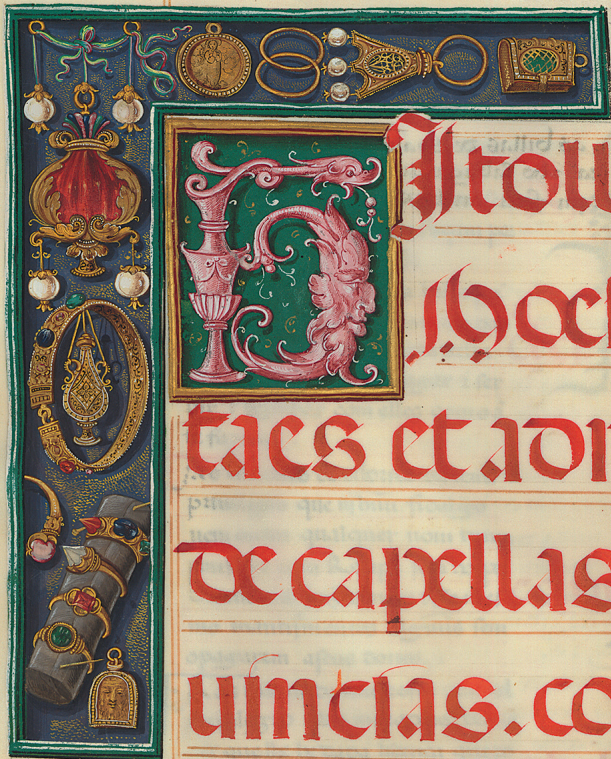 s, hoc
taes et adi
de capellas
uincias. co